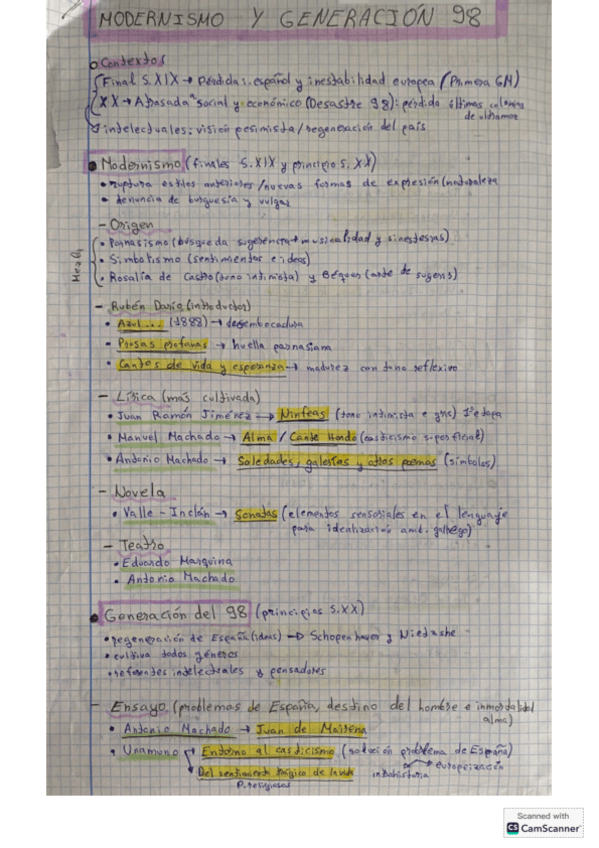 MODERNISMO Y GENERACIÓN 98
Contextos
Final S. XIX → Pérdida i. español y inestabilidad europea (Primera GM)
XX → Atrasada social y económico (Desastre 98): pérdida últimas colonias
de ultramar
intelectuales: visión pesimista/regeneración del país
Modernismo (finales S. XIX y principio S. XX)
• ruptura estilos anteriores/nuevas formas de expresión (naturaleza
• denuncia de burguesía y vulgar
- Origen
Mezcla
• Parnasismo (búsqueda sugerencia + musicalidad y sinestesias)
• Simbolismo (sentimientos e ideas)
• Rosalía de Castro (tono intimista) y Béquer (arte de sugerir)
- Rubén Darío (introductor)
• Azul... (1888) → desembocadura
• Prosas profanas → huella parnasiana
• Cantos de vida y esperanza → madurez con tono reflexivo
- Lírica (más cultivada)
• Juan Ramón Jiménez → Ninfeas (tono intimista e gris) 1ª etapa
• Manuel Machado → Alma / Cante Hondo (casticismo superficial)
• Antonio Machado → Soledades, galerías y otros poemas (símbolos)
- Novela
• Valle-Inclán → Sonatas (elementos sensoriales en el lenguaje
para idealización amb. gallego)
- Teatro
• Eduardo Marquina
• Antonio Machado
Generación del 98 (principios S. XX)
• regeneración de España (ideas) → Schopenhauer y Nietzshe
• cultiva todos géneros
• referentes intelectuales y pensadores
- Ensayo (problemas de España, destino del hombre e inmortalidad
alma)
• Antonio Machado → Juan de Mairena
• Unamuno → Entorno al casticismo (solución problema de España)
europeización
intrahistoria
Del sentimiento trágico de la vida
P. religiosos
Scanned with
CS CamScanner